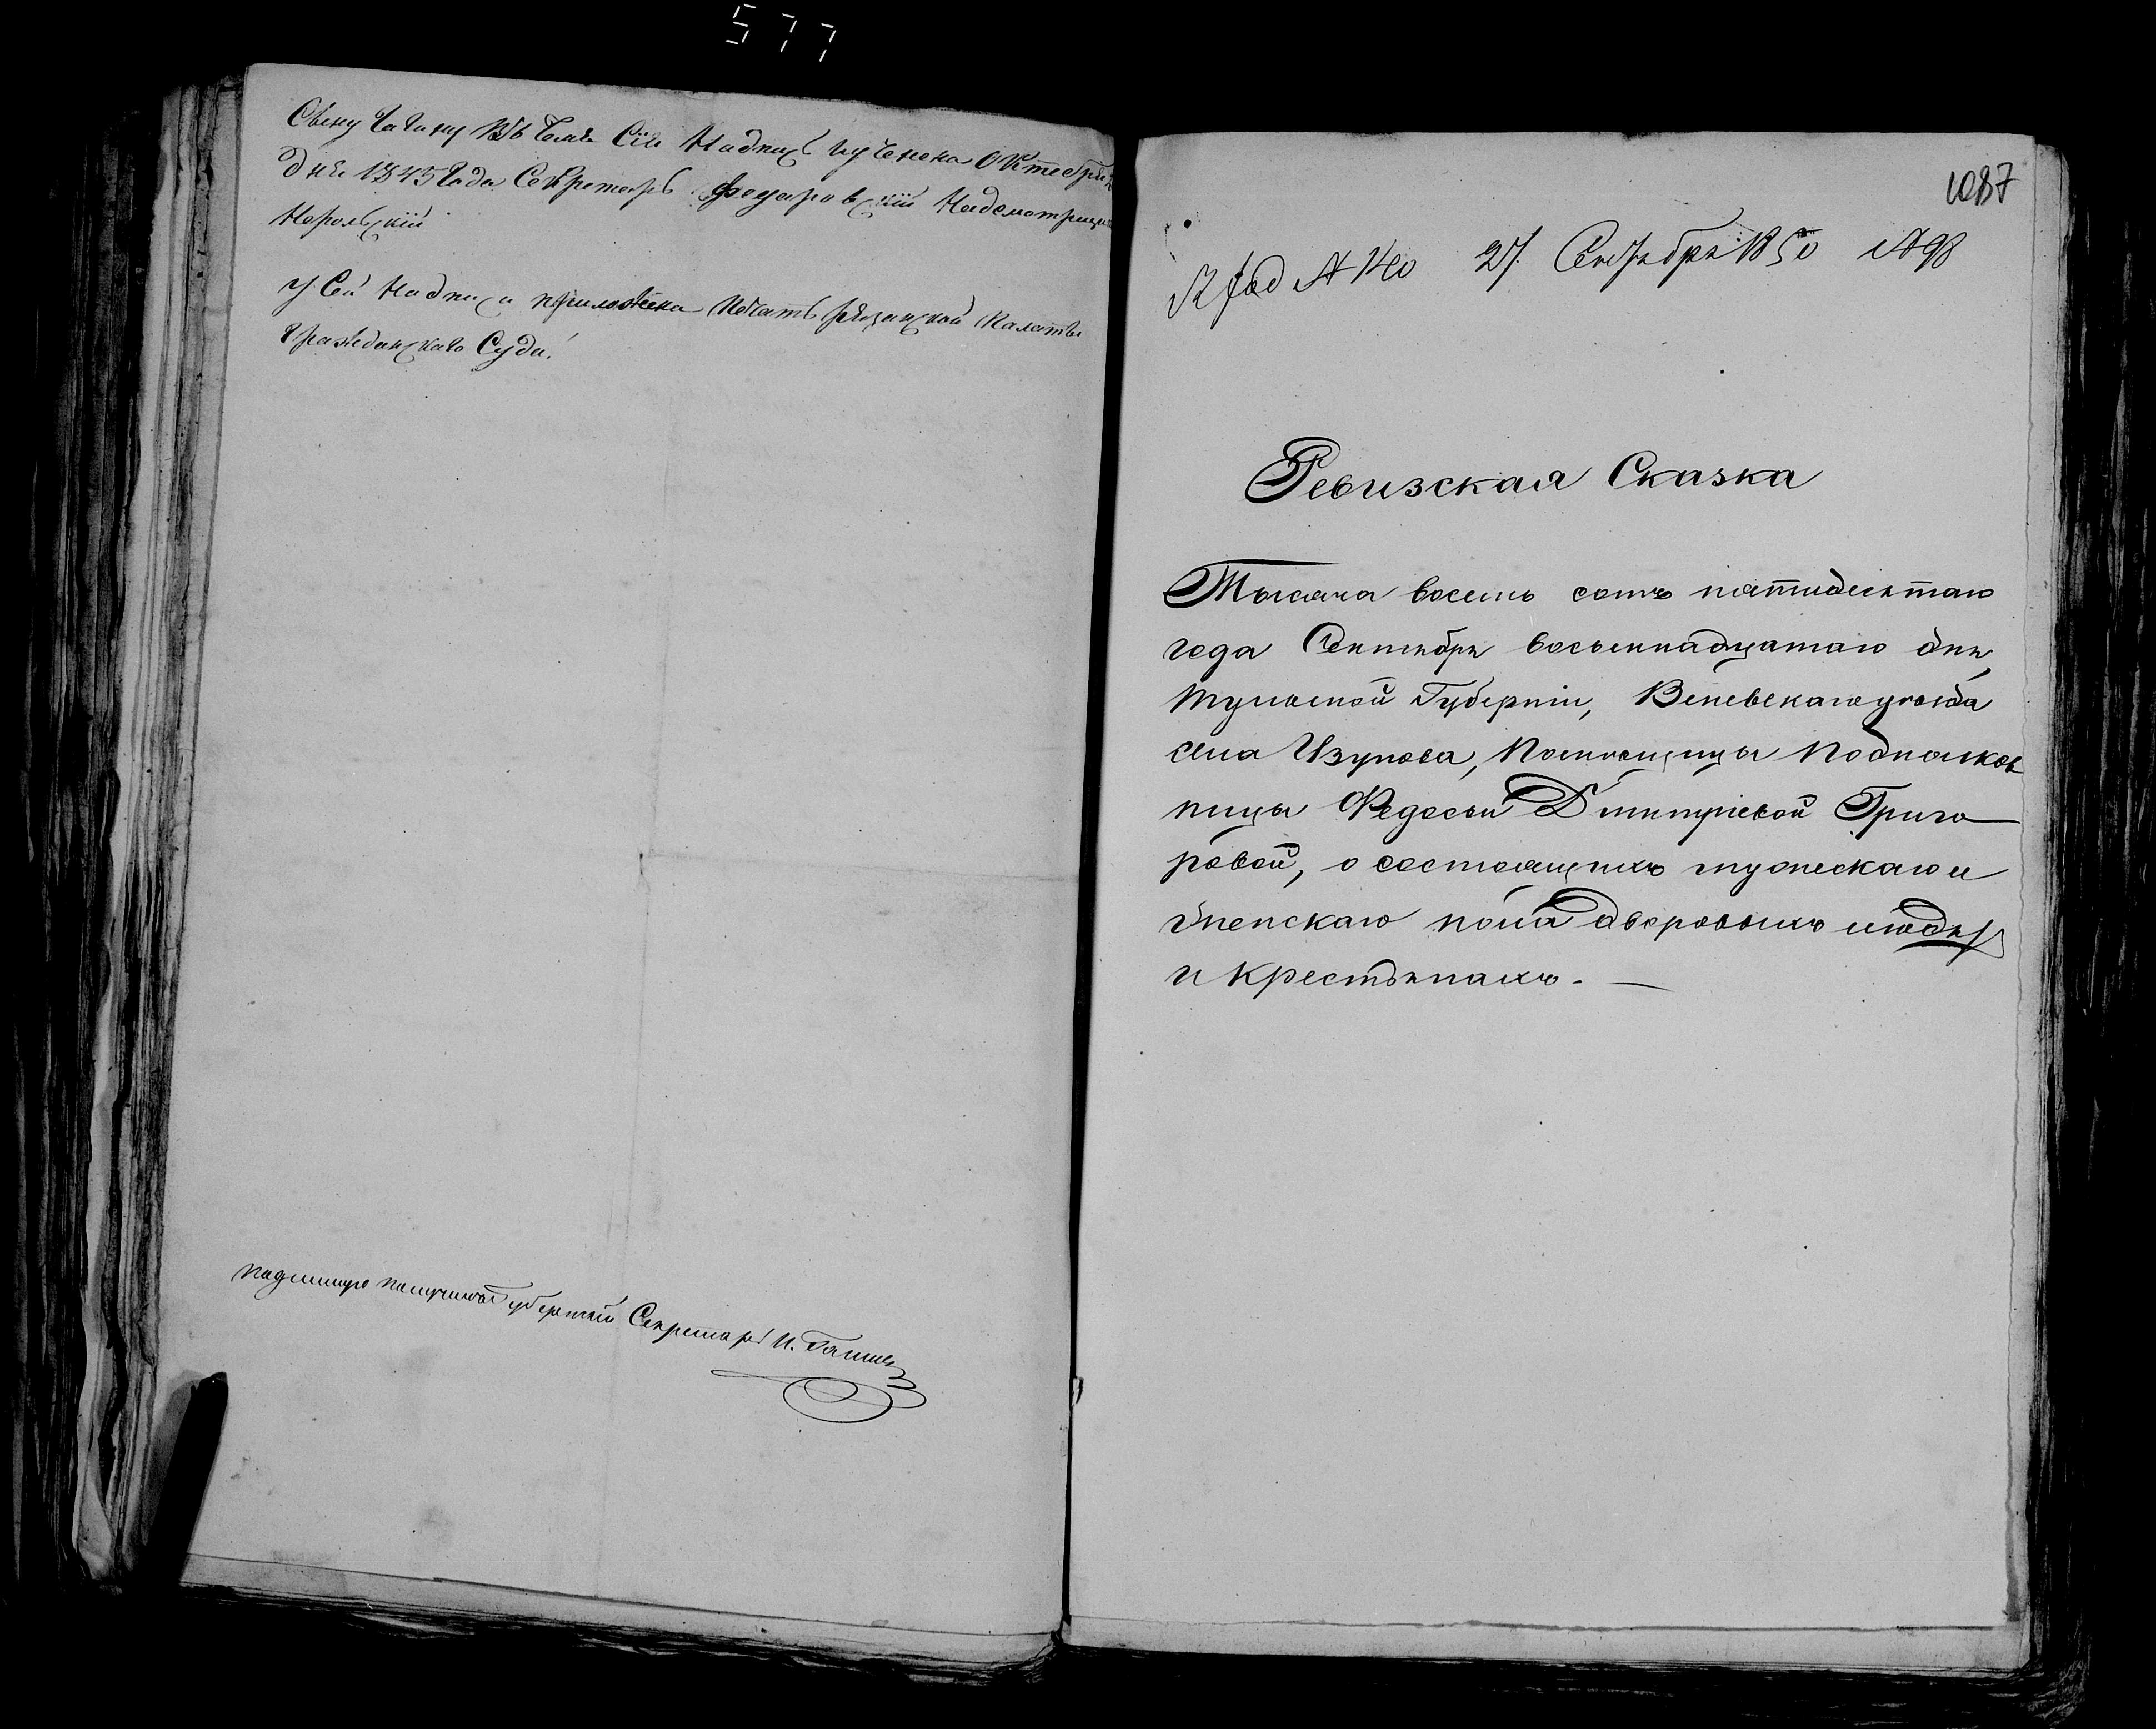 577
Сему чину въ чемъ Сія Надпись учинена Октебря
дня 1845 Года Секретарь Надсмотрщикъ
У Сей Надписи приложена Печать Рязанской Палаты
Гражданскаго Суда.
Подлинную получилъ Губернскій Секретарь И.
1087
27 Сентября 1850 № 98
Ревизская Сказка
Тысяча восемь сотъ пятидесятаго
года Сентября восьмнадцатаго дня,
Тульской Губерніи, Веневскаго уѣзда
села Изунова, Помѣщицы Подполков
ницы Федосьи Дмитріевой Григо
ровой, о состоящихъ мужескаго и
женскаго пола дворовыхъ людях
и крестьянахъ. —